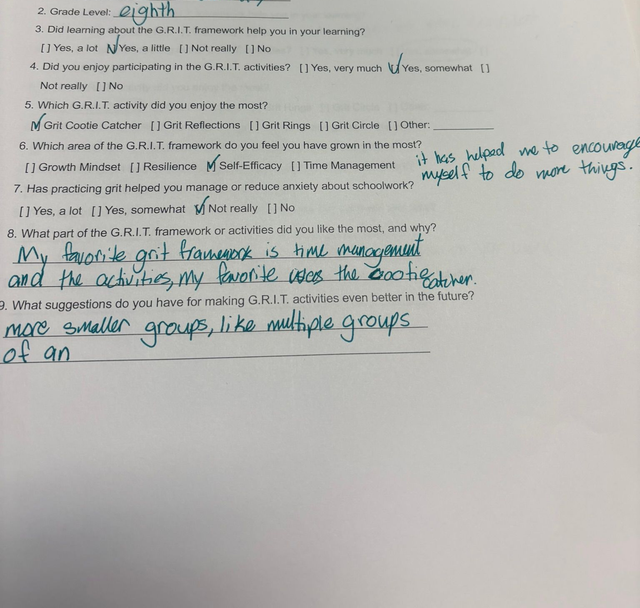 2. Grade Level: eighth
3. Did learning about the G.R.I.T. framework help you in your learning?
[ ] Yes, a lot [✓] Yes, a little [ ] Not really [ ] No
4. Did you enjoy participating in the G.R.I.T. activities? [ ] Yes, very much [✓] Yes, somewhat [ ]
Not really [ ] No
5. Which G.R.I.T. activity did you enjoy the most?
[✓] Grit Cootie Catcher [ ] Grit Reflections [ ] Grit Rings [ ] Grit Circle [ ] Other:
6. Which area of the G.R.I.T. framework do you feel you have grown in the most?
[ ] Growth Mindset [ ] Resilience [✓] Self-Efficacy [ ] Time Management
it has helped me to encourage
myself to do more things.
7. Has practicing grit helped you manage or reduce anxiety about schoolwork?
[ ] Yes, a lot [ ] Yes, somewhat [✓] Not really [ ] No
8. What part of the G.R.I.T. framework or activities did you like the most, and why?
My favorite grit framework is time management
and the activities, my favorite was the cootie catcher.
9. What suggestions do you have for making G.R.I.T. activities even better in the future?
more smaller groups, like multiple groups
of an